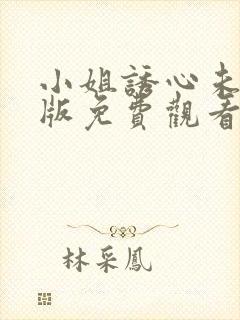 小姐誘心未
版免費觀看
林采鳳